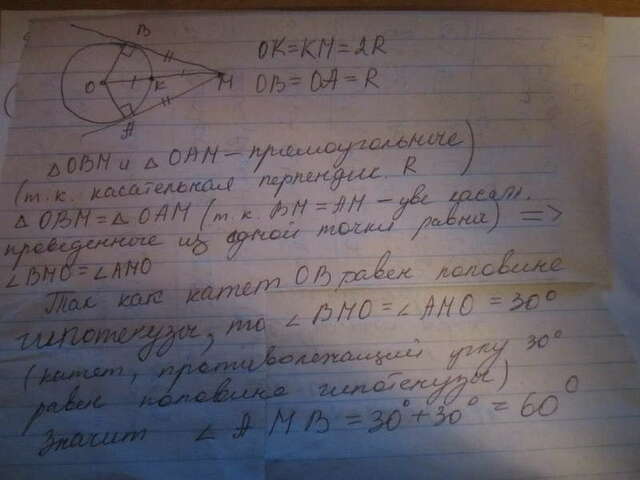 B
OK=KM=2R
O K M
OB=OA=R
A
△OBM и △OAM – прямоугольные
(т.к. касательная перпендик. R)
△OBM=△OAM (т.к. BM=AM – две касат.
проведенные из одной точки равна) =>
∠BMO=∠AMO
Так как катет OB равен половине
гипотенузы, то ∠BMO=∠AMO=30°
(катет, противолежащий углу 30°
равен половине гипотенузы)
Значит ∠AMB=30°+30°=60°